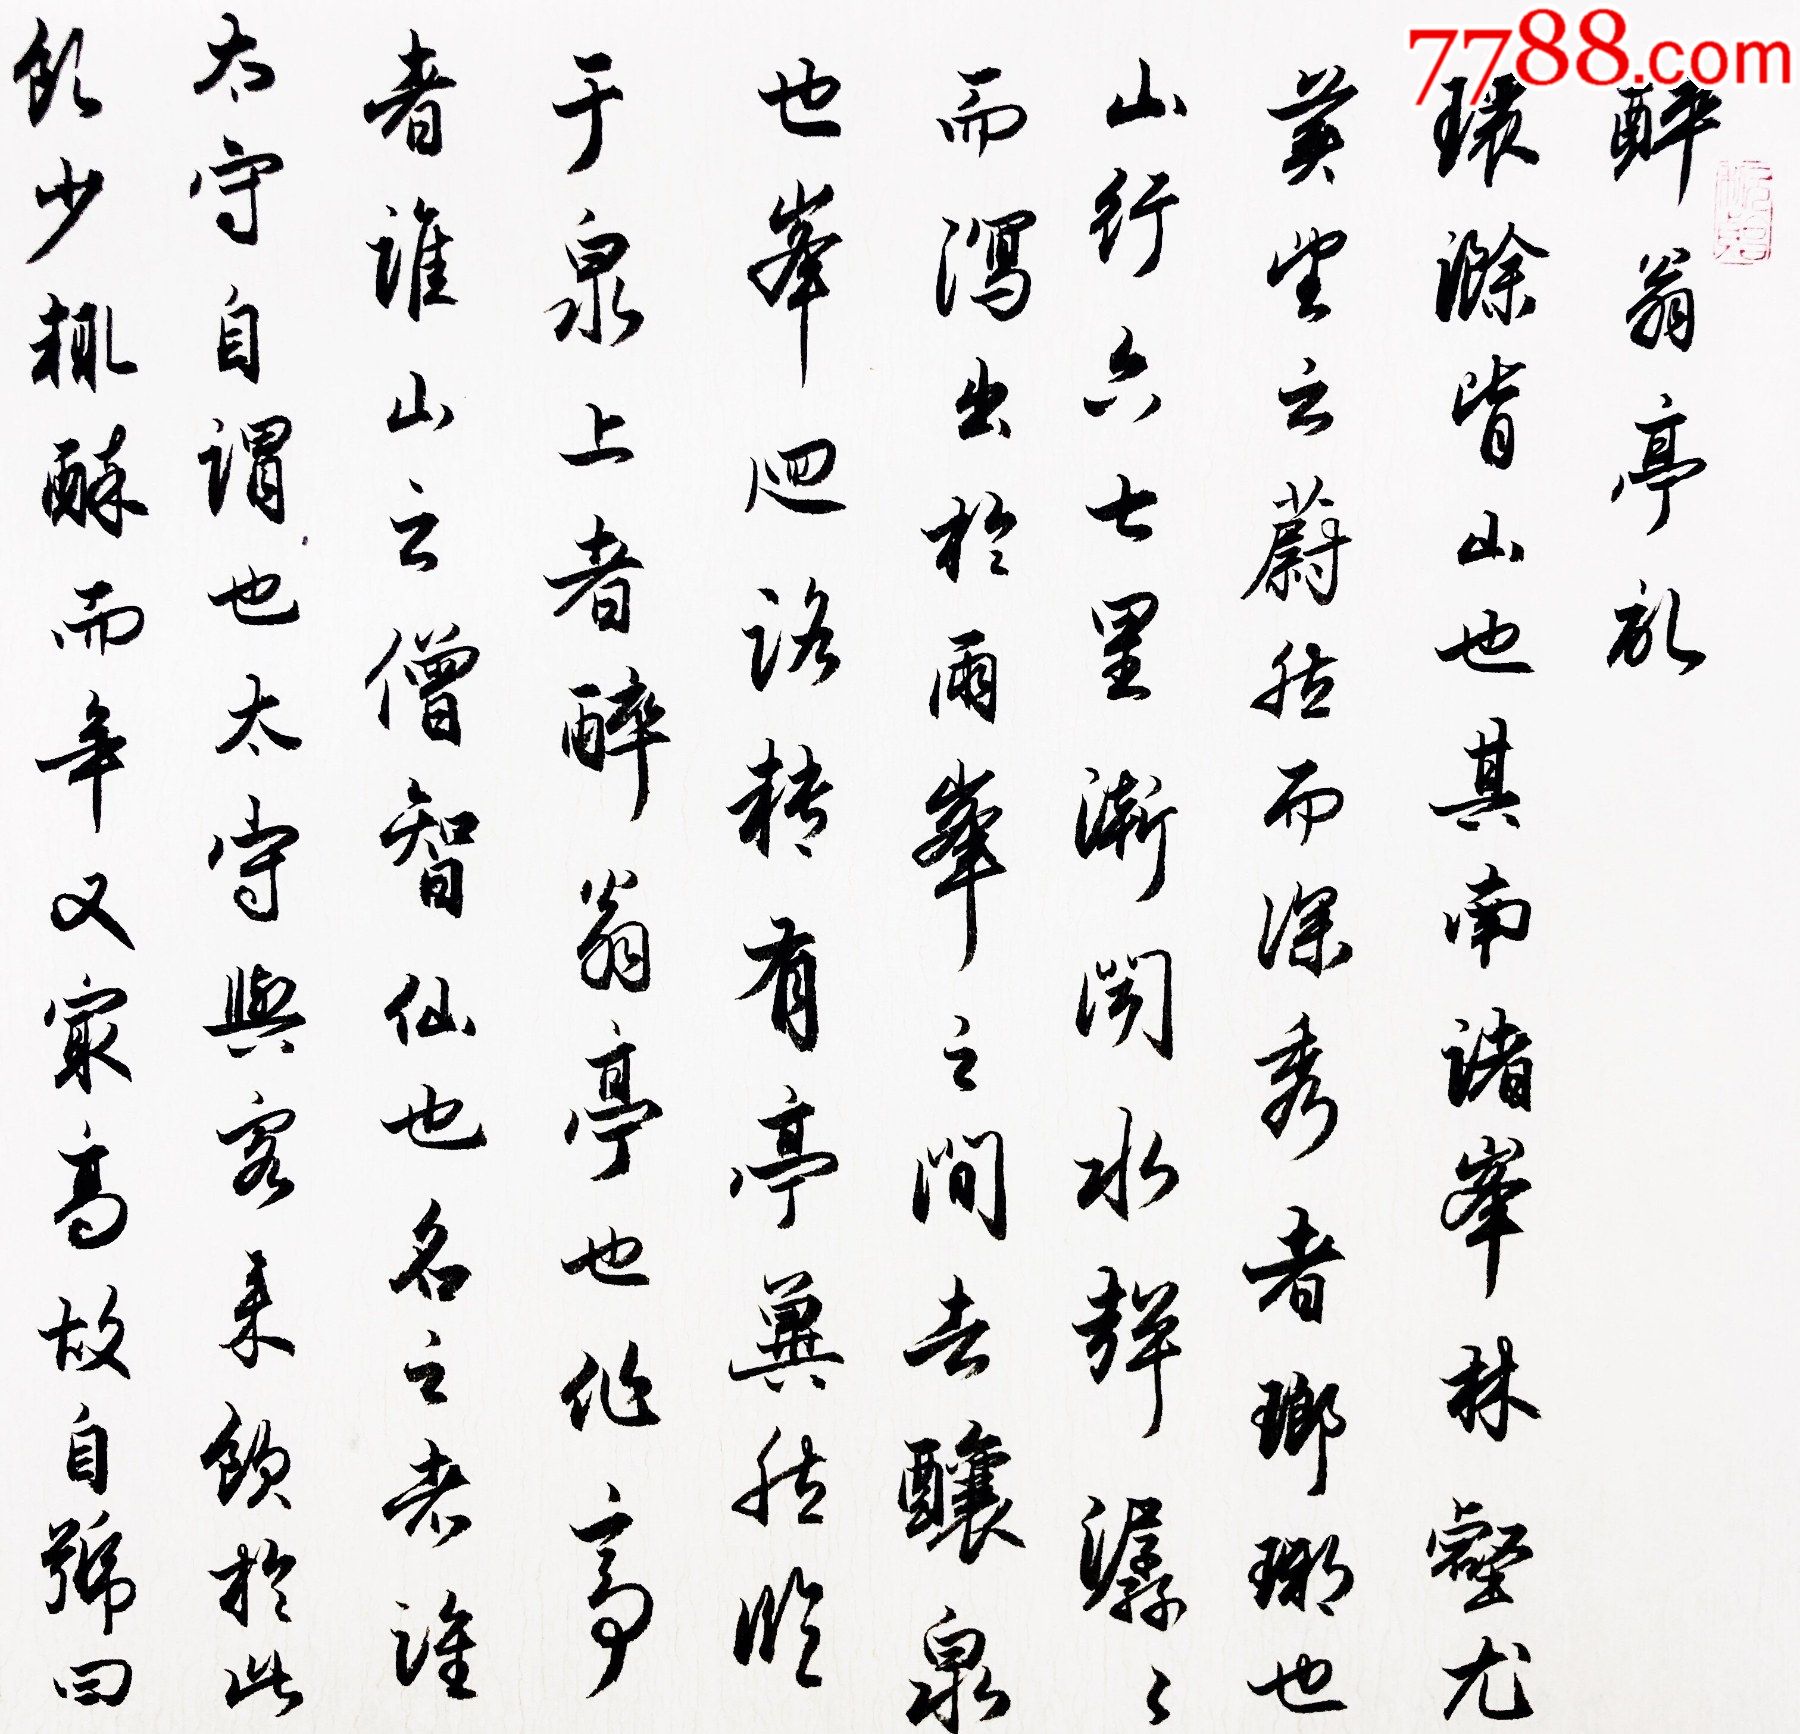 7788.com
醉翁亭記
環滁皆山也其南諸峯林壑尤
美望之蔚然而深秀者瑯琊也
山行六七里漸聞水聲潺々
而瀉出於兩峯之間者釀泉
也峯回路轉有亭翼然臨
于泉上者醉翁亭也作亭
者誰山之僧智仙也名之者誰
太守自謂也太守與客來飲於此
飲少輒醉而年又最高故自號曰